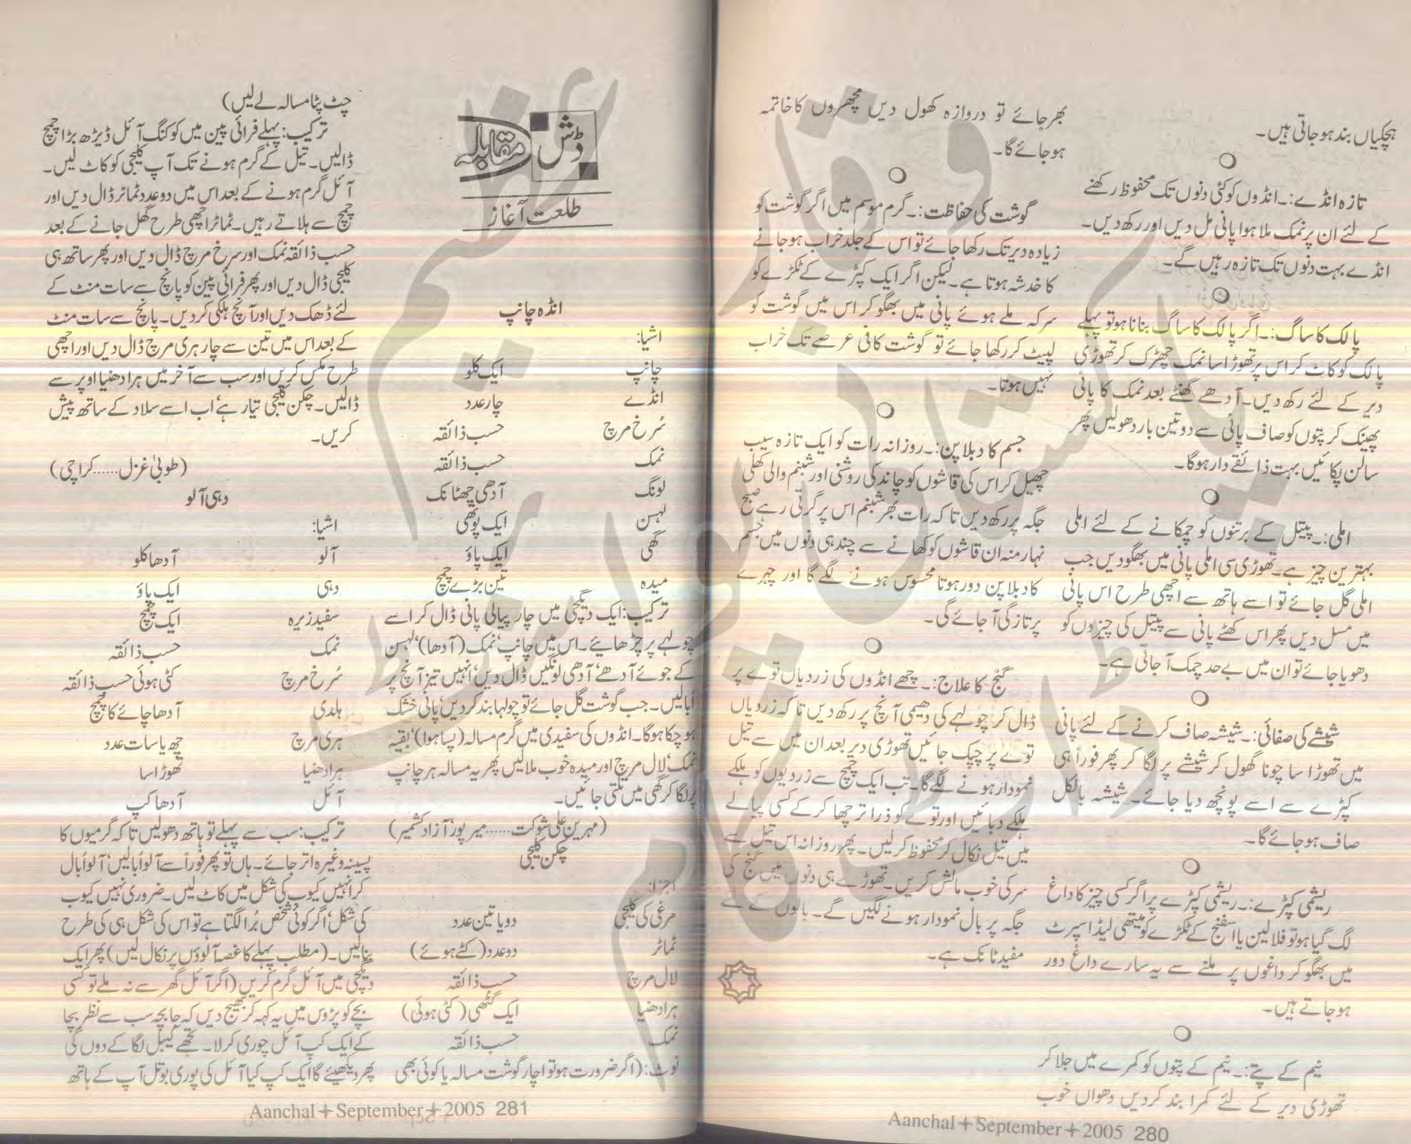 ہچکیاں بند ہو جاتی ہیں۔
تازہ انڈے:۔ انڈوں کو کئی دنوں تک محفوظ رکھنے
کے لئے ان پر نمک ملا ہوا پانی مل دیں اور رکھ دیں۔
انڈے بہت دنوں تک تازہ رہیں گے۔
پالک کا ساگ:۔ اگر پالک کا ساگ بنانا ہو تو پہلے
پالک کو کاٹ کر اس پر تھوڑا سا نمک چھڑک کر تھوڑی
دیر کے لئے رکھ دیں۔ آدھے گھنٹے بعد نمک کا پانی
پھینک کر پتوں کو صاف پانی سے دو تین بار دھو لیں پھر
سالن پکائیں بہت ذائقے دار ہوگا۔
املی:۔ پیتل کے برتنوں کو چمکانے کے لئے املی
بہترین چیز ہے۔ تھوڑی سی املی پانی میں بھگو دیں جب
املی گل جائے تو اسے ہاتھ سے اچھی طرح اس پانی
میں مسل دیں پھر اس کھٹے پانی سے پیتل کی چیزوں کو
دھویا جائے تو ان میں بے حد چمک آ جاتی ہے۔
شیشے کی صفائی:۔ شیشہ صاف کرنے کے لئے پانی
میں تھوڑا سا چونا گھول کر شیشے پر لگا کر پھر فوراً ہی
کپڑے سے اسے پونچھ دیا جائے۔ شیشہ بالکل
صاف ہو جائے گا۔
ریشمی کپڑے:۔ ریشمی کپڑے پر اگر کسی چیز کا داغ
لگ گیا ہو تو فلالین یا اسفنج کے ٹکڑے کو میتھی لیٹڈ اسپرٹ
میں بھگو کر داغوں پر ملنے سے یہ سارے داغ دور
ہو جاتے ہیں۔
نیم کے پتے:۔ نیم کے پتوں کو کمرے میں جلا کر
تھوڑی دیر کے لئے کمرا بند کر دیں دھواں خوب
بھر جائے تو دروازہ کھول دیں مچھروں کا خاتمہ
ہو جائے گا۔
گوشت کی حفاظت:۔ گرم موسم میں اگر گوشت کو
زیادہ دیر تک رکھا جائے تو اس کے جلد خراب ہو جانے
کا خدشہ ہوتا ہے۔ لیکن اگر ایک کپڑے کے ٹکڑے کو
سرکہ ملے ہوئے پانی میں بھگو کر اس میں گوشت کو
لپیٹ کر رکھا جائے تو گوشت کافی عرصے تک خراب
نہیں ہوتا۔
جسم کا دبلا پن:۔ روزانہ رات کو ایک تازہ سیب
چھیل کر اس کی قاشوں کو چاند کی روشنی اور شبنم والی کھلی
جگہ پر رکھ دیں تاکہ رات بھر شبنم اس پر گرتی رہے صبح
نہار منہ ان قاشوں کو کھانے سے چند ہی دنوں میں جسم
کا دبلا پن دور ہوتا محسوس ہونے لگے گا اور چہرے
پر تازگی آ جائے گی۔
گنج کا علاج:۔ چھے انڈوں کی زردیاں توے پر
ڈال کر چولہے کی دھیمی آنچ پر رکھ دیں تاکہ زردیاں
توے پر چپک جائیں تھوڑی دیر بعد ان میں سے تیل
نمودار ہونے لگے گا۔ تب ایک چمچ سے زردیوں کو ہلکے
ہلکے دبائیں اور توے کو ذرا ترچھا کر کے کسی پیالے
میں تیل نکال کر محفوظ کر لیں۔ پھر روزانہ اس تیل سے
سر کی خوب مالش کریں۔ تھوڑے ہی دنوں میں گنج کی
جگہ پر بال نمودار ہونے لگیں گے۔ بالوں کے لئے
مفید ٹانک ہے۔
Aanchal + September + 2005 280
ڈش مقابلہ
طلعت آغاز
انڈہ چانپ
اشیا:
چانپ ایک کلو
انڈے چار عدد
سُرخ مرچ حسب ذائقہ
نمک حسب ذائقہ
لونگ آدھی چھٹانک
لہسن ایک پوتھی
گھی ایک پاؤ
میدہ تین بڑے چمچ
ترکیب: ایک دیگچی میں چار پیالی پانی ڈال کر اسے
چولہے پر چڑھائیے۔ اس میں چانپ، نمک (آدھا)، لہسن
کے جوئے آدھے، آدھی لونگیں ڈال دیں، انہیں تیز آنچ پر
اُبالیں۔ جب گوشت گل جائے تو چولہا بند کر دیں، پانی خشک
ہو چکا ہوگا۔ انڈوں کی سفیدی میں گرم مسالہ (پسا ہوا)، بقیہ
نمک، لال مرچ اور میدہ خوب ملا لیں پھر یہ مسالہ ہر چانپ
پر لگا کر گھی میں تلتی جائیں۔
(مہرین علی شوکت...... میرپور آزاد کشمیر)
چکن کلیجی
اجزا:
مرغی کی کلیجی دو یا تین عدد
ٹماٹر دو عدد (کٹے ہوئے)
لال مرچ حسب ذائقہ
ہرا دھنیا ایک گٹھی (کٹی ہوئی)
نمک حسب ذائقہ
نوٹ: (اگر ضرورت ہو تو اچار گوشت مسالہ یا کوئی بھی
چٹ پٹا مسالہ لے لیں)
ترکیب: پہلے فرائی پین میں کوکنگ آئل ڈیڑھ بڑا چمچ
ڈالیں۔ تیل کے گرم ہونے تک آپ کلیجی کو کاٹ لیں۔
آئل گرم ہونے کے بعد اس میں دو عدد ٹماٹر ڈال دیں اور
چمچ سے ہلاتے رہیں۔ ٹماٹر اچھی طرح گھل جانے کے بعد
حسب ذائقہ نمک اور سرخ مرچ ڈال دیں اور پھر ساتھ ہی
کلیجی ڈال دیں اور پھر فرائی پین کو پانچ سے سات منٹ کے
لئے ڈھک دیں اور آنچ ہلکی کر دیں۔ پانچ سے سات منٹ
کے بعد اس میں تین سے چار ہری مرچ ڈال دیں اور اچھی
طرح مکس کریں اور سب سے آخر میں ہرا دھنیا اوپر سے
ڈالیں۔ چکن کلیجی تیار ہے، اب اسے سلاد کے ساتھ پیش
کریں۔
(طوبیٰ غزل...... کراچی)
دہی آلو
اشیا:
آلو آدھا کلو
دہی ایک پاؤ
سفید زیرہ ایک چمچ
نمک حسب ذائقہ
سُرخ مرچ کٹی ہوئی حسب ذائقہ
ہلدی آدھا چائے کا چمچ
ہری مرچ چھ یا سات عدد
ہرا دھنیا تھوڑا سا
آئل آدھا کپ
ترکیب: سب سے پہلے تو ہاتھ دھو لیں تاکہ گرمیوں کا
پسینہ وغیرہ اتر جائے۔ ہاں تو پھر فوراً سے آلو اُبالیں، آلو اُبال
کر انہیں کیوب کی شکل میں کاٹ لیں۔ ضروری نہیں کیوب
کی شکل، اگر کوئی شخص بُرا لگتا ہے تو اس کی شکل ہی کی طرح
بنا لیں۔ (مطلب پہلے کا غصہ آلوؤں پر نکال لیں) پھر ایک
دیگچی میں آئل گرم کریں (اگر آئل گھر سے نہ ملے تو کسی
بچے کو پڑوس میں یہ کہہ کر بھیج دیں کہ جا بچہ سب سے نظر بچا
کے ایک کپ آئل چوری کر لا۔ تجھے کیبل لگا کے دوں گی
پھر دیکھیئے گا ایک کپ کیا آئل کی پوری بوتل آپ کے ہاتھ
Aanchal + September + 2005 281